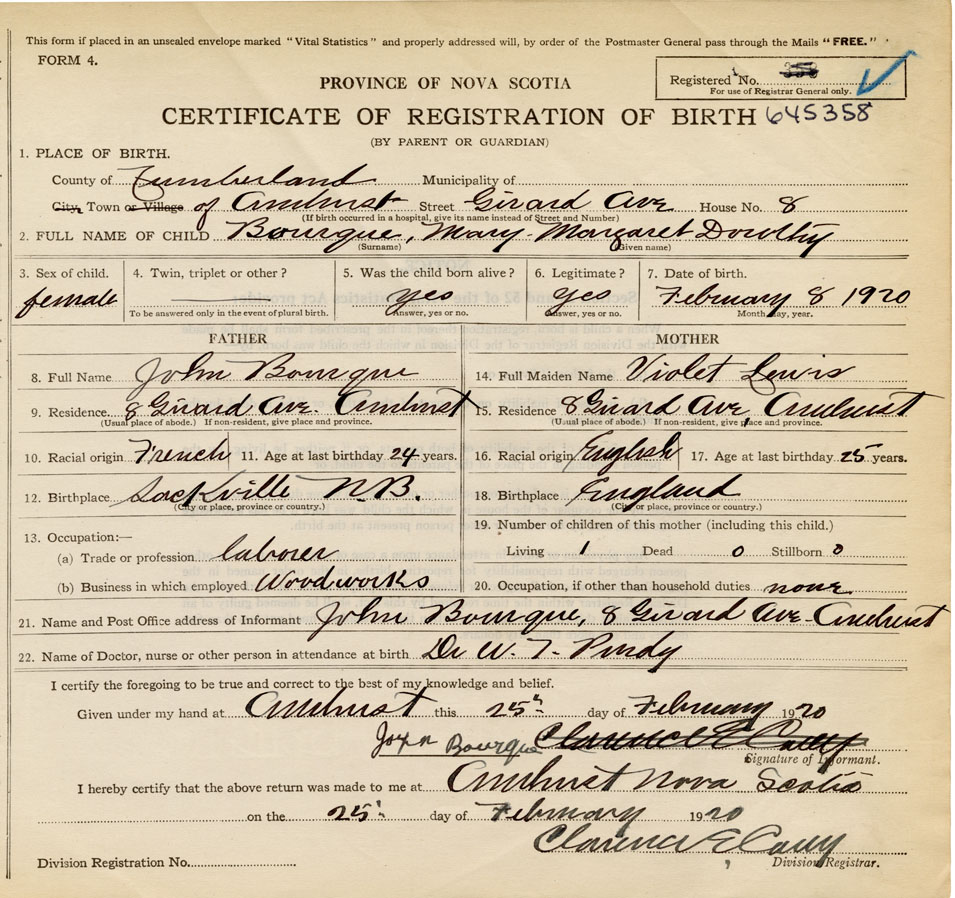 This form if placed in an unsealed envelope marked "Vital Statistics" and properly addressed will, by order of the Postmaster General pass through the Mails "FREE."
FORM 4.
Registered No.
For use of Registrar General only.
PROVINCE OF NOVA SCOTIA
CERTIFICATE OF REGISTRATION OF BIRTH 645358
(BY PARENT OR GUARDIAN)
1. PLACE OF BIRTH.
County of Cumberland Municipality of
City, Town or Village of Amherst Street Girard Ave House No. 8
(If birth occurred in a hospital, give its name instead of Street and Number)
2. FULL NAME OF CHILD Bourque, Mary Margaret Dorothy
(Surname) (Given name)
3. Sex of child. 4. Twin, triplet or other? 5. Was the child born alive? 6. Legitimate? 7. Date of birth.
female yes yes February 8 1920
To be answered only in the event of plural birth. Answer, yes or no. Answer, yes or no. Month, day, year.
FATHER MOTHER
8. Full Name John Bourque 14. Full Maiden Name Violet Lewis
9. Residence 8 Girard Ave. Amherst 15. Residence 8 Girard Ave, Amherst
(Usual place of abode.) If non-resident, give place and province. (Usual place of abode.) If non-resident, give place and province.
10. Racial origin French 11. Age at last birthday 24 years. 16. Racial origin English 17. Age at last birthday 25 years.
12. Birthplace Sackville N.B. 18. Birthplace England
(City or place, province or country.) (City or place, province or country.)
13. Occupation:— 19. Number of children of this mother (including this child.)
(a) Trade or profession laborer Living 1 Dead 0 Stillborn 0
(b) Business in which employed Woodworks 20. Occupation, if other than household duties none
21. Name and Post Office address of Informant John Bourque, 8 Girard Ave. Amherst
22. Name of Doctor, nurse or other person in attendance at birth Dr W. T. Purdy
I certify the foregoing to be true and correct to the best of my knowledge and belief.
Given under my hand at Amherst this 25th day of February 1920
John Bourque Clarence E Casey
Signature of Informant.
I hereby certify that the above return was made to me at Amherst Nova Scotia
on the 25th day of February 1920
Clarence E Casey
Division Registration No. Division Registrar.